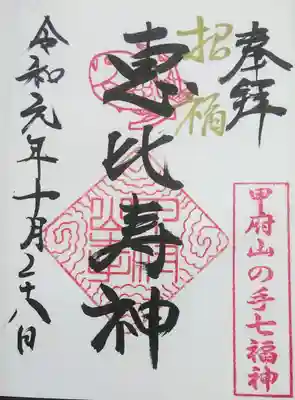 奉拝
招福
恵比寿神
甲府山の手七福神
令和元年十月二十八日